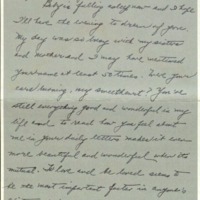 Baby is "falling asleep now" and I hope
I'll have the evening to dream of you.
My day was so busy with my sisters
and motherhood I may have mentioned
your name at least 50 times. Are your
ears burning, my sweetheart? You're
still everything good and wonderful in my
life and to read how you feel about
me in your daily letters makes it even
more beautiful and wonderful when it's
mutual. To love and be loved seems to
be the most important factor in anyone's